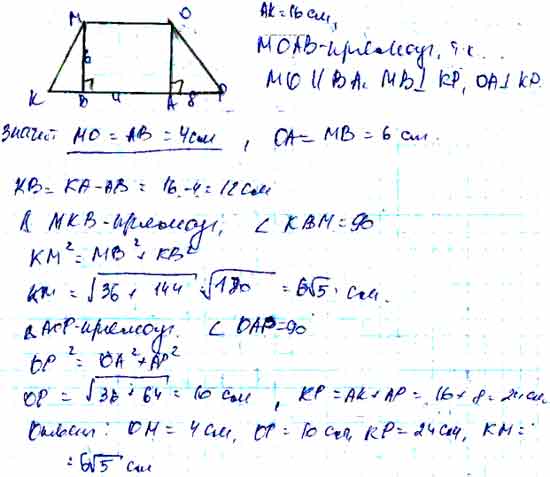 AK = 16 см,
M O
MOAB - прямоуг, т.к.
6
MO || BA. MB ⊥ KP, OA ⊥ KP.
K B 4 A 8 P
Значит MO = AB = 4 см, OA = MB = 6 см.
KB = KA - AB = 16 - 4 = 12 см
Δ MKB - прямоуг, ∠ KBM = 90
KM² = MB² + KB²
KM = √36 + 144 = √180 = 6√5 см.
Δ AOP - прямоуг. ∠ OAP = 90
OP² = OA² + AP²
OP = √36 + 64 = 10 см, KP = AK + AP = 16 + 8 = 24 см
Ответ: OM = 4 см, OP = 10 см, KP = 24 см, KM =
= 6√5 см